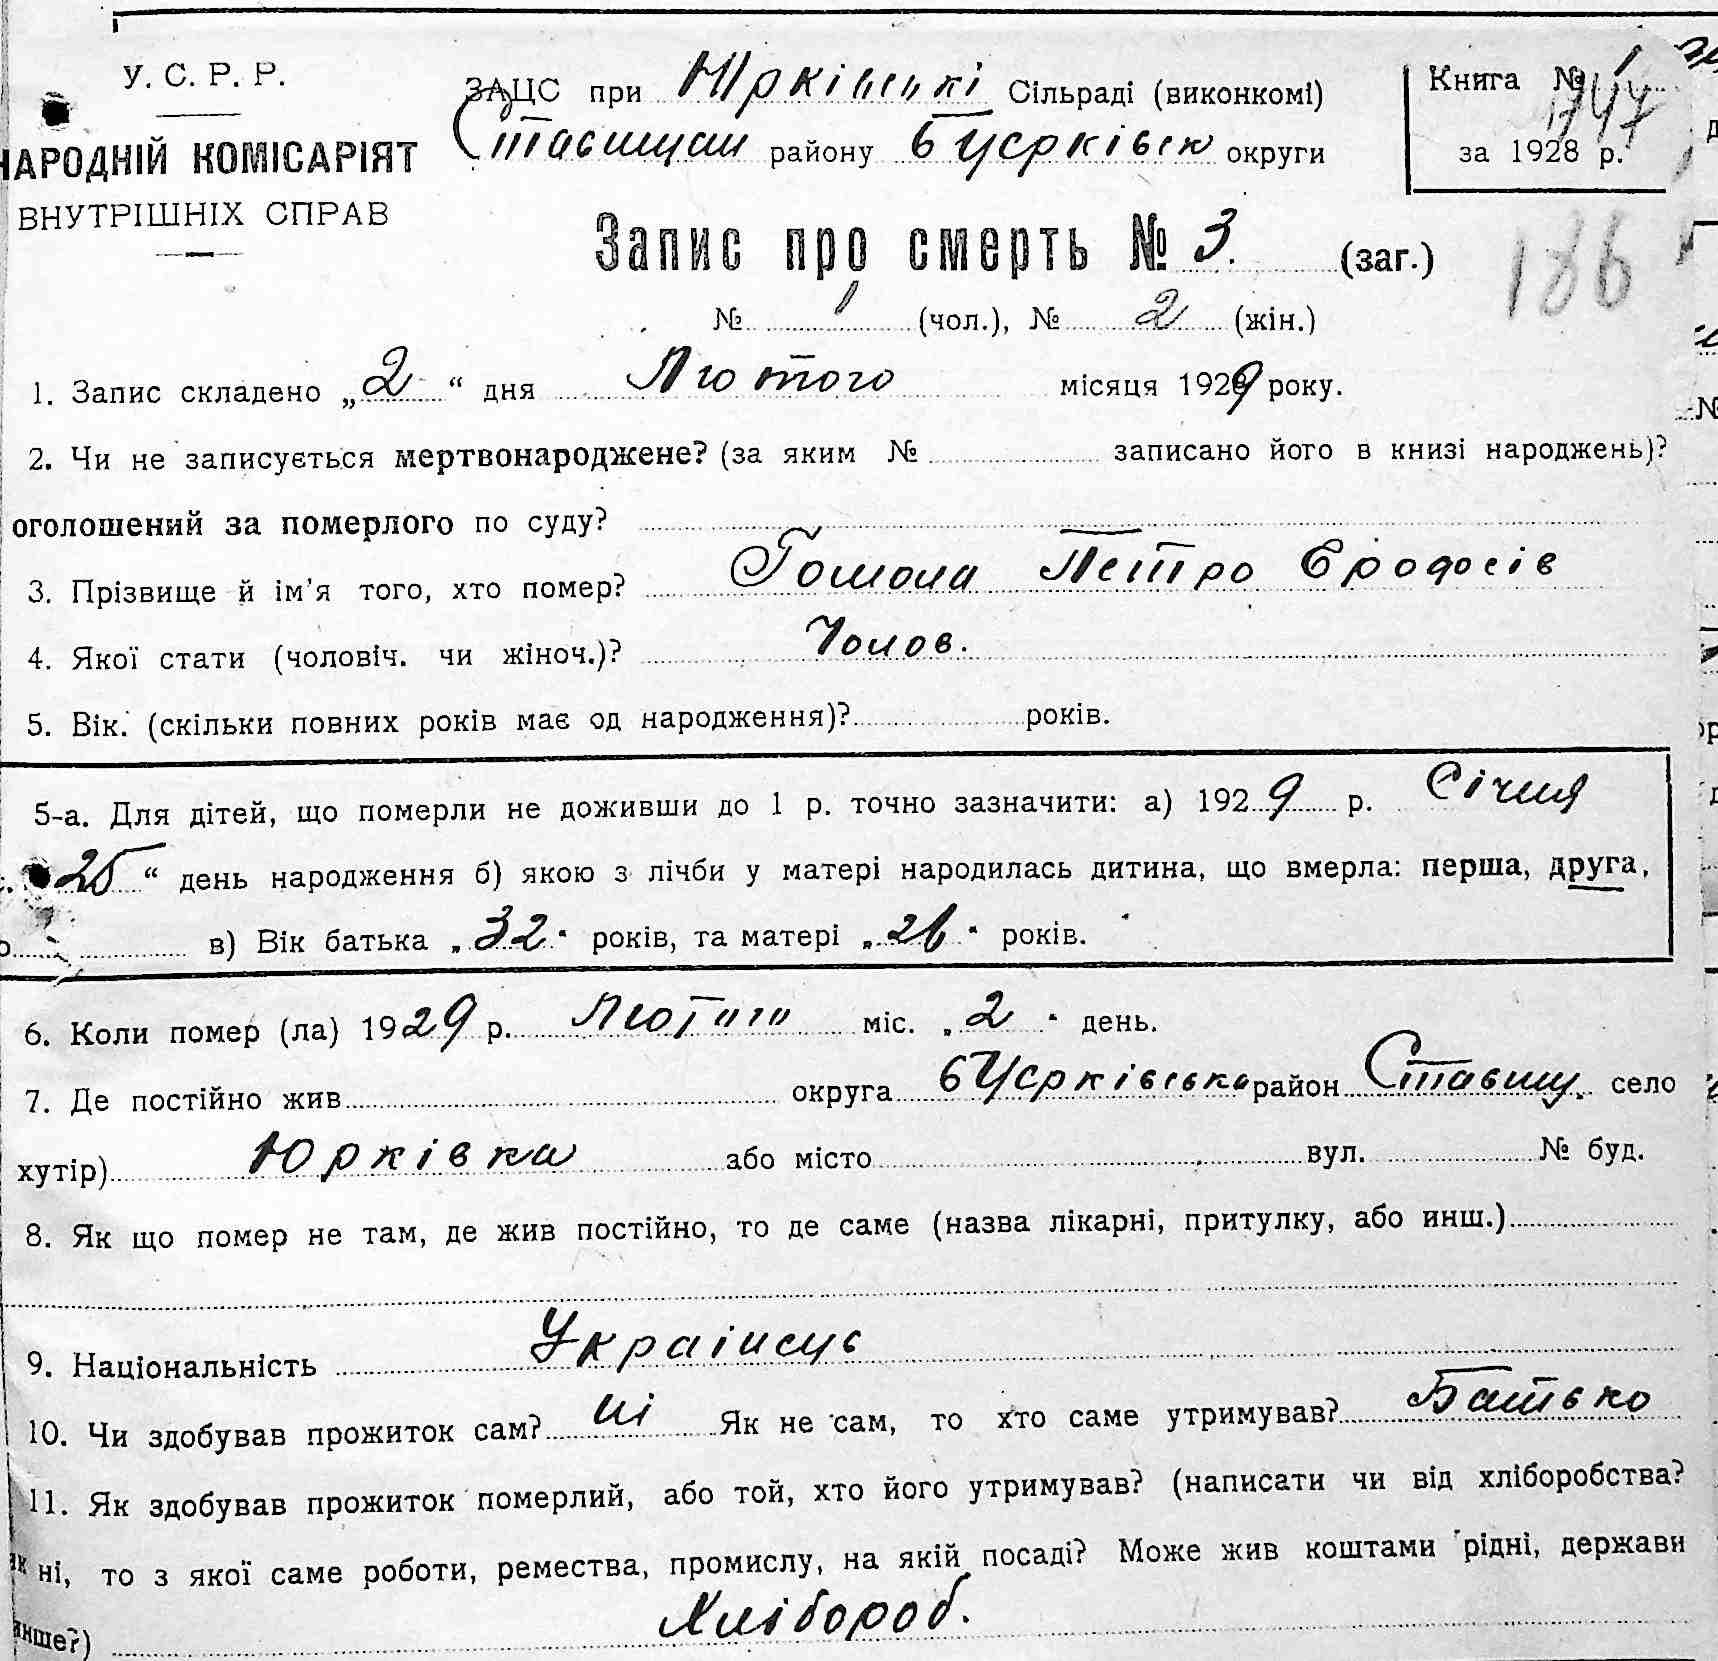 У. С. Р. Р.
НАРОДНІЙ КОМІСАРІЯТ
ВНУТРІШНІХ СПРАВ
ЗАЦС при Юрківські Сільраді (виконкомі)
Ставищан району БЦерківськ округи
Книга № 1
747
за 1928 р.
186
Запис про смерть № 3 (заг.)
№ 1 (чол.), № 2 (жін.)
1. Запис складено „2“ дня Лютого місяця 1929 року.
2. Чи не записується мертвонароджене? (за яким № записано його в книзі народжень)?
оголошений за померлого по суду?
3. Прізвище й ім'я того, хто помер? Гомола Петро
4. Якої стати (чоловіч. чи жіноч.)? Чолов.
5. Вік. (скільки повних років має од народження)? років.
5-а. Для дітей, що померли не доживши до 1 р. точно зазначити: а) 1929 р. Січня
25 “ день народження б) якою з лічби у матері народилась дитина, що вмерла: перша, друга,
в) Вік батька „32“ років, та матері „26“ років.
6. Коли помер (ла) 1929 р. Лютого міс. „2“ день.
7. Де постійно жив округа БЦерківська район Ставищ. село
хутір) Юрківка або місто вул. № буд.
8. Як що помер не там, де жив постійно, то де саме (назва лікарні, притулку, або инш.)
9. Національність Українець
10. Чи здобував прожиток сам? ні Як не сам, то хто саме утримував? Батько
11. Як здобував прожиток померлий, або той, хто його утримував? (написати чи від хліборобства?
як ні, то з якої саме роботи, ремества, промислу, на якій посаді? Може жив коштами рідні, держави
инше?) Хлібороб.